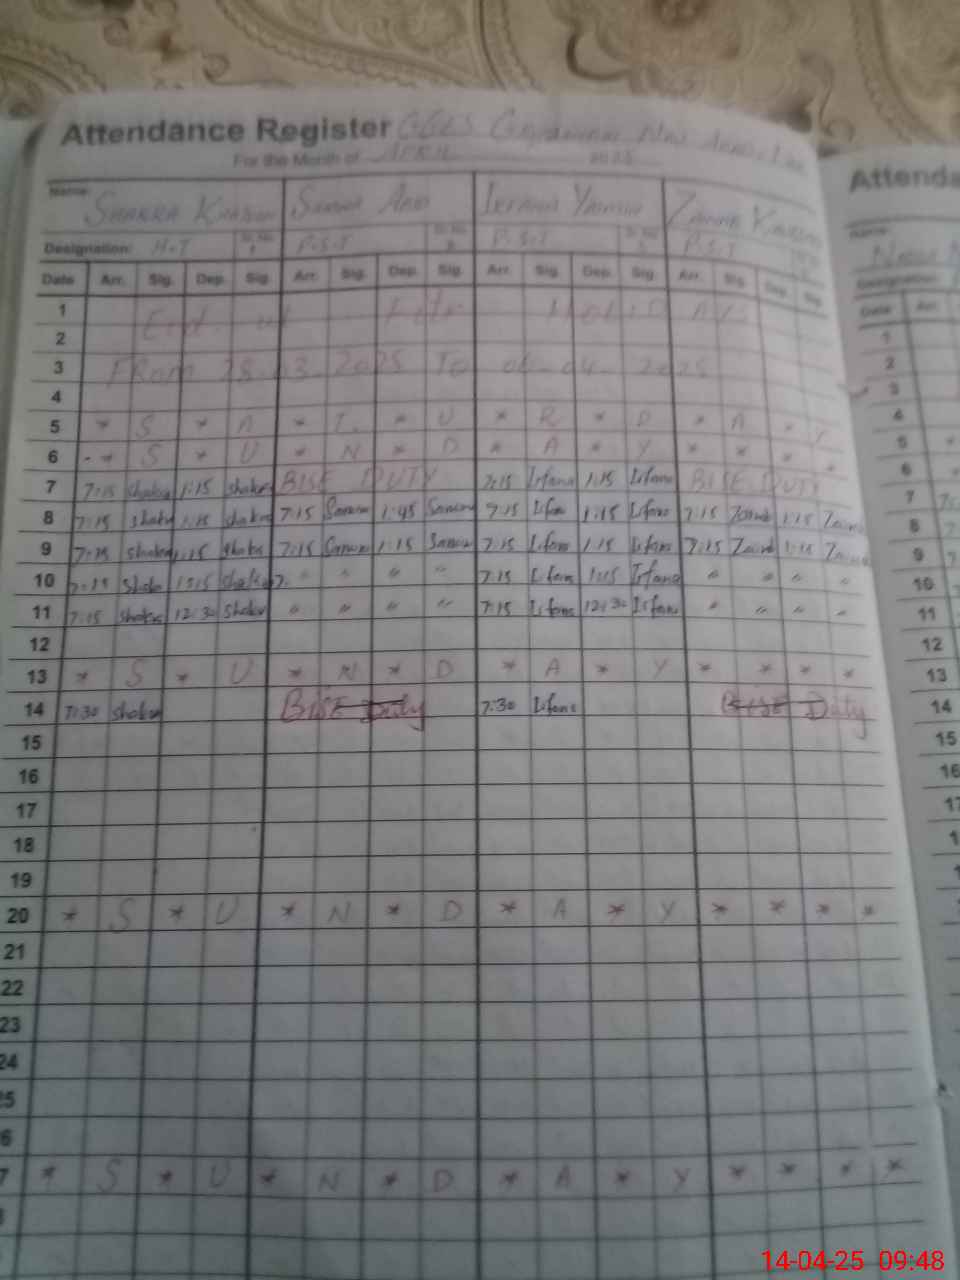 Attendance Register GGES
For the Month of APRIL 2025
Name: SHAKRA KHATOON IRFANA YASMIN
Designation: H.T Sr. No. P.S.T Sr. No. P.S.T Sr. No. P.S.T
Date Arr. Sig. Dep. Sig. Arr. Sig. Dep. Sig. Arr. Sig. Dep. Sig. Arr. Sig. Dep. Sig.
1 Eid ul Fitr HOLIDAYS
2
3 FRom 28-03-2025 To 06-04-2025
4
5 * S * A * T * U * R * D * A * Y
6 * S * U * N * D * A * Y * * * *
7 7:15 Shakra 1:15 Shakra BISE DUTY 7:15 Irfana 1:15 Irfana BISE DUTY
8 7:15 Shakra 1:15 Shakra 7:15 1:45 7:15 Irfana 1:15 Irfana 7:15 1:15
9 7:15 Shakra 1:15 Shakra 7:15 1:15 7:15 Irfana 1:15 Irfana 7:15 1:15
10 7:15 Shakra 1:15 Shakra " " " 7:15 Irfana 1:15 Irfana " " " "
11 7:15 Shakra 12:30 Shakra " " " " 7:15 Irfana 12:30 Irfana " " " "
12
13 * S * U * N * D * A * Y * * * *
14 7:30 Shakra BISE Duty 7:30 Irfana BISE Duty
15
16
17
18
19
20 * S * U * N * D * A * Y * * * *
21
22
23
24
5
6
7 * S * U * N * D * A * Y * * * *
Attenda
Name:
Designation:
Date Arr.
1
2
3
4
5
6
7
8
9
10
11
12
13
14
15
16
17
14-04-25 09:48